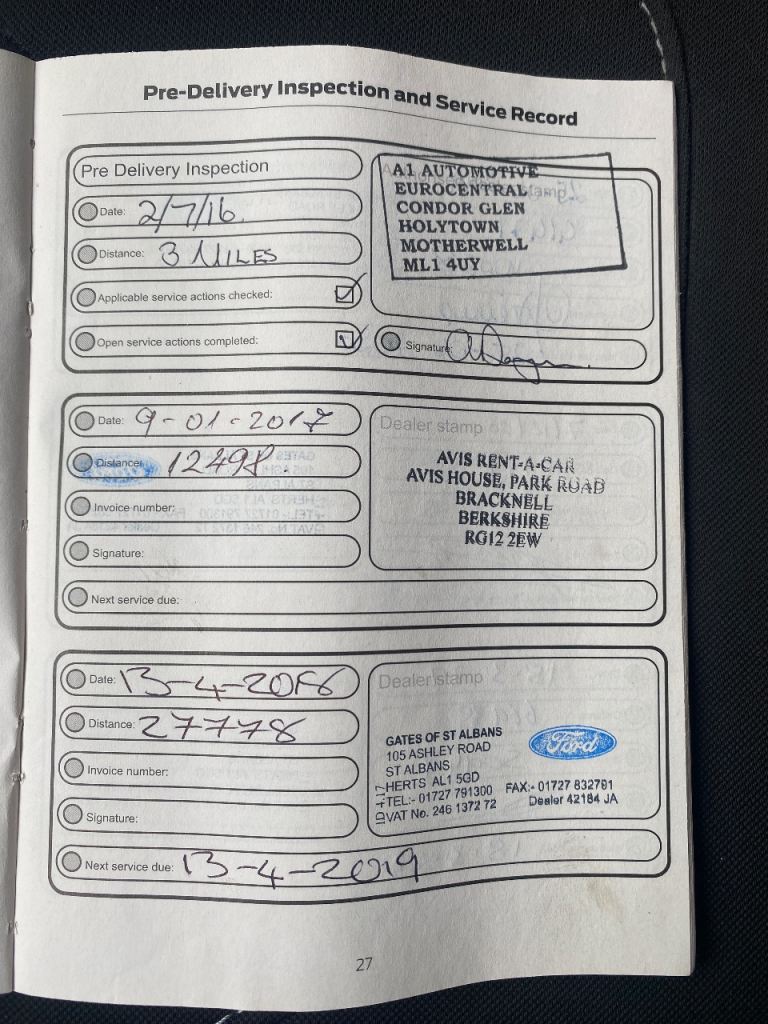 Pre-Delivery Inspection and Service Record
Pre Delivery Inspection
Date: 2/7/16.
Distance: 3 MILES
Applicable service actions checked:
Open service actions completed:
A1 AUTOMOTIVE
EUROCENTRAL
CONDOR GLEN
HOLYTOWN
MOTHERWELL
ML1 4UY
Signature:
Date: 9-01-2017
Distance: 12498
Invoice number:
Signature:
Next service due:
Dealer stamp
AVIS RENT-A-CAR
AVIS HOUSE, PARK ROAD
BRACKNELL
BERKSHIRE
RG12 2EW
Date: 13-4-2018
Distance: 27778
Invoice number:
Signature:
Next service due: 13-4-2019
Dealer stamp
GATES OF ST ALBANS
105 ASHLEY ROAD
ST ALBANS
HERTS AL1 5GD
TEL:- 01727 791300 FAX:- 01727 832791
VAT No. 246 1372 72 Dealer 42184 JA
Ford
27